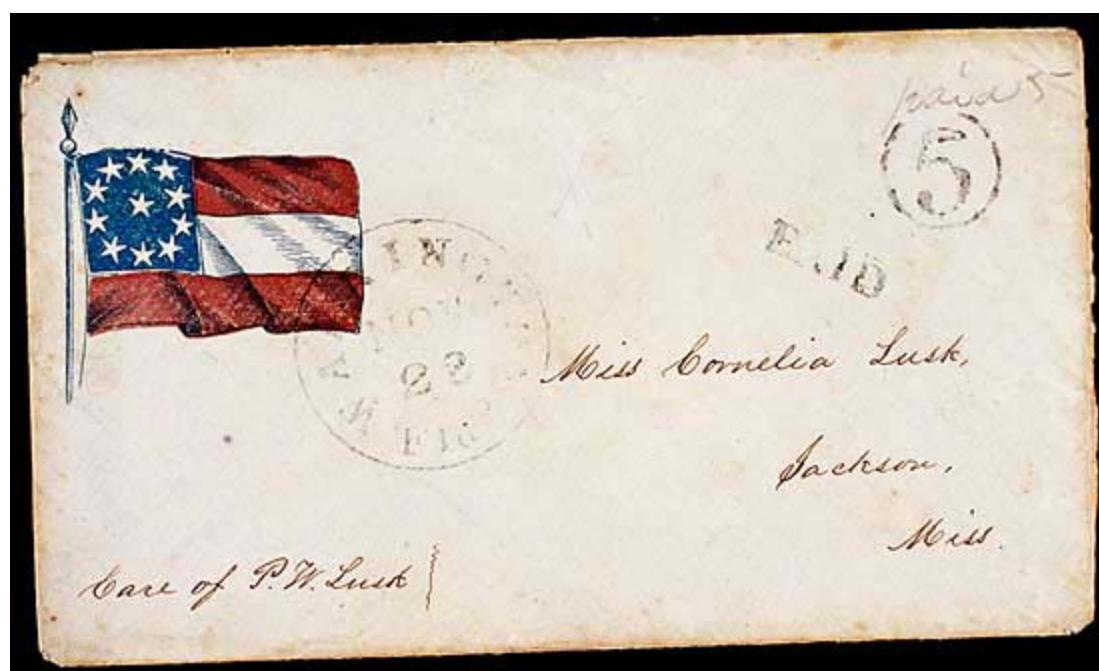 paid 5
5
PAID
NOV
23
MISS
Miss Cornelia Lusk,
Jackson,
Miss.
Care of P. W. Lusk